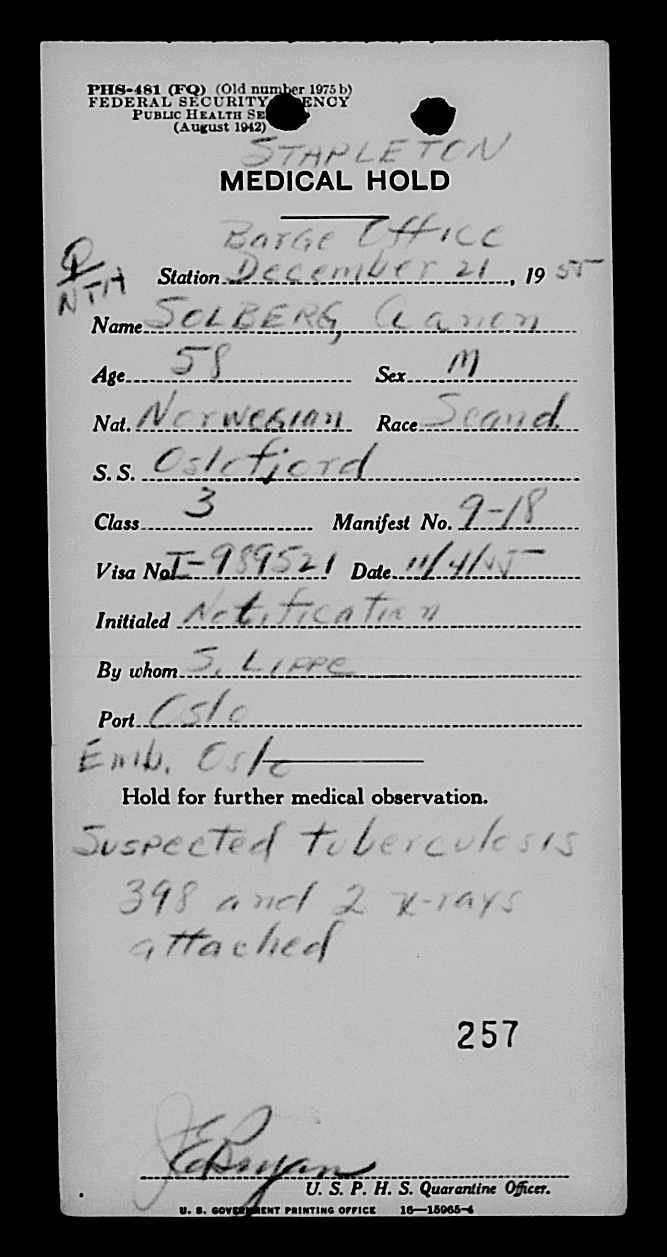 PHS-481 (FQ) (Old number 1975 b)
FEDERAL SECURITY AGENCY
PUBLIC HEALTH SE
(August 1942)
STAPLETON
MEDICAL HOLD
Barge Office
NTH
Station December 21, 1955
Name SOLBERG, Aanon
Age 58 Sex M
Nat. Norwegian Race Scand.
S. S. Oslofjord
Class 3 Manifest No. 9-18
Visa No. I-989521 Date 11/4/55
Initialed Notification
By whom S. Lippe
Port Oslo
Emb. Oslo
Hold for further medical observation.
Suspected tuberculosis
398 and 2 x-rays
attached
257
JEBryan
U. S. P. H. S. Quarantine Officer.
U. S. GOVERNMENT PRINTING OFFICE 16—15965-4